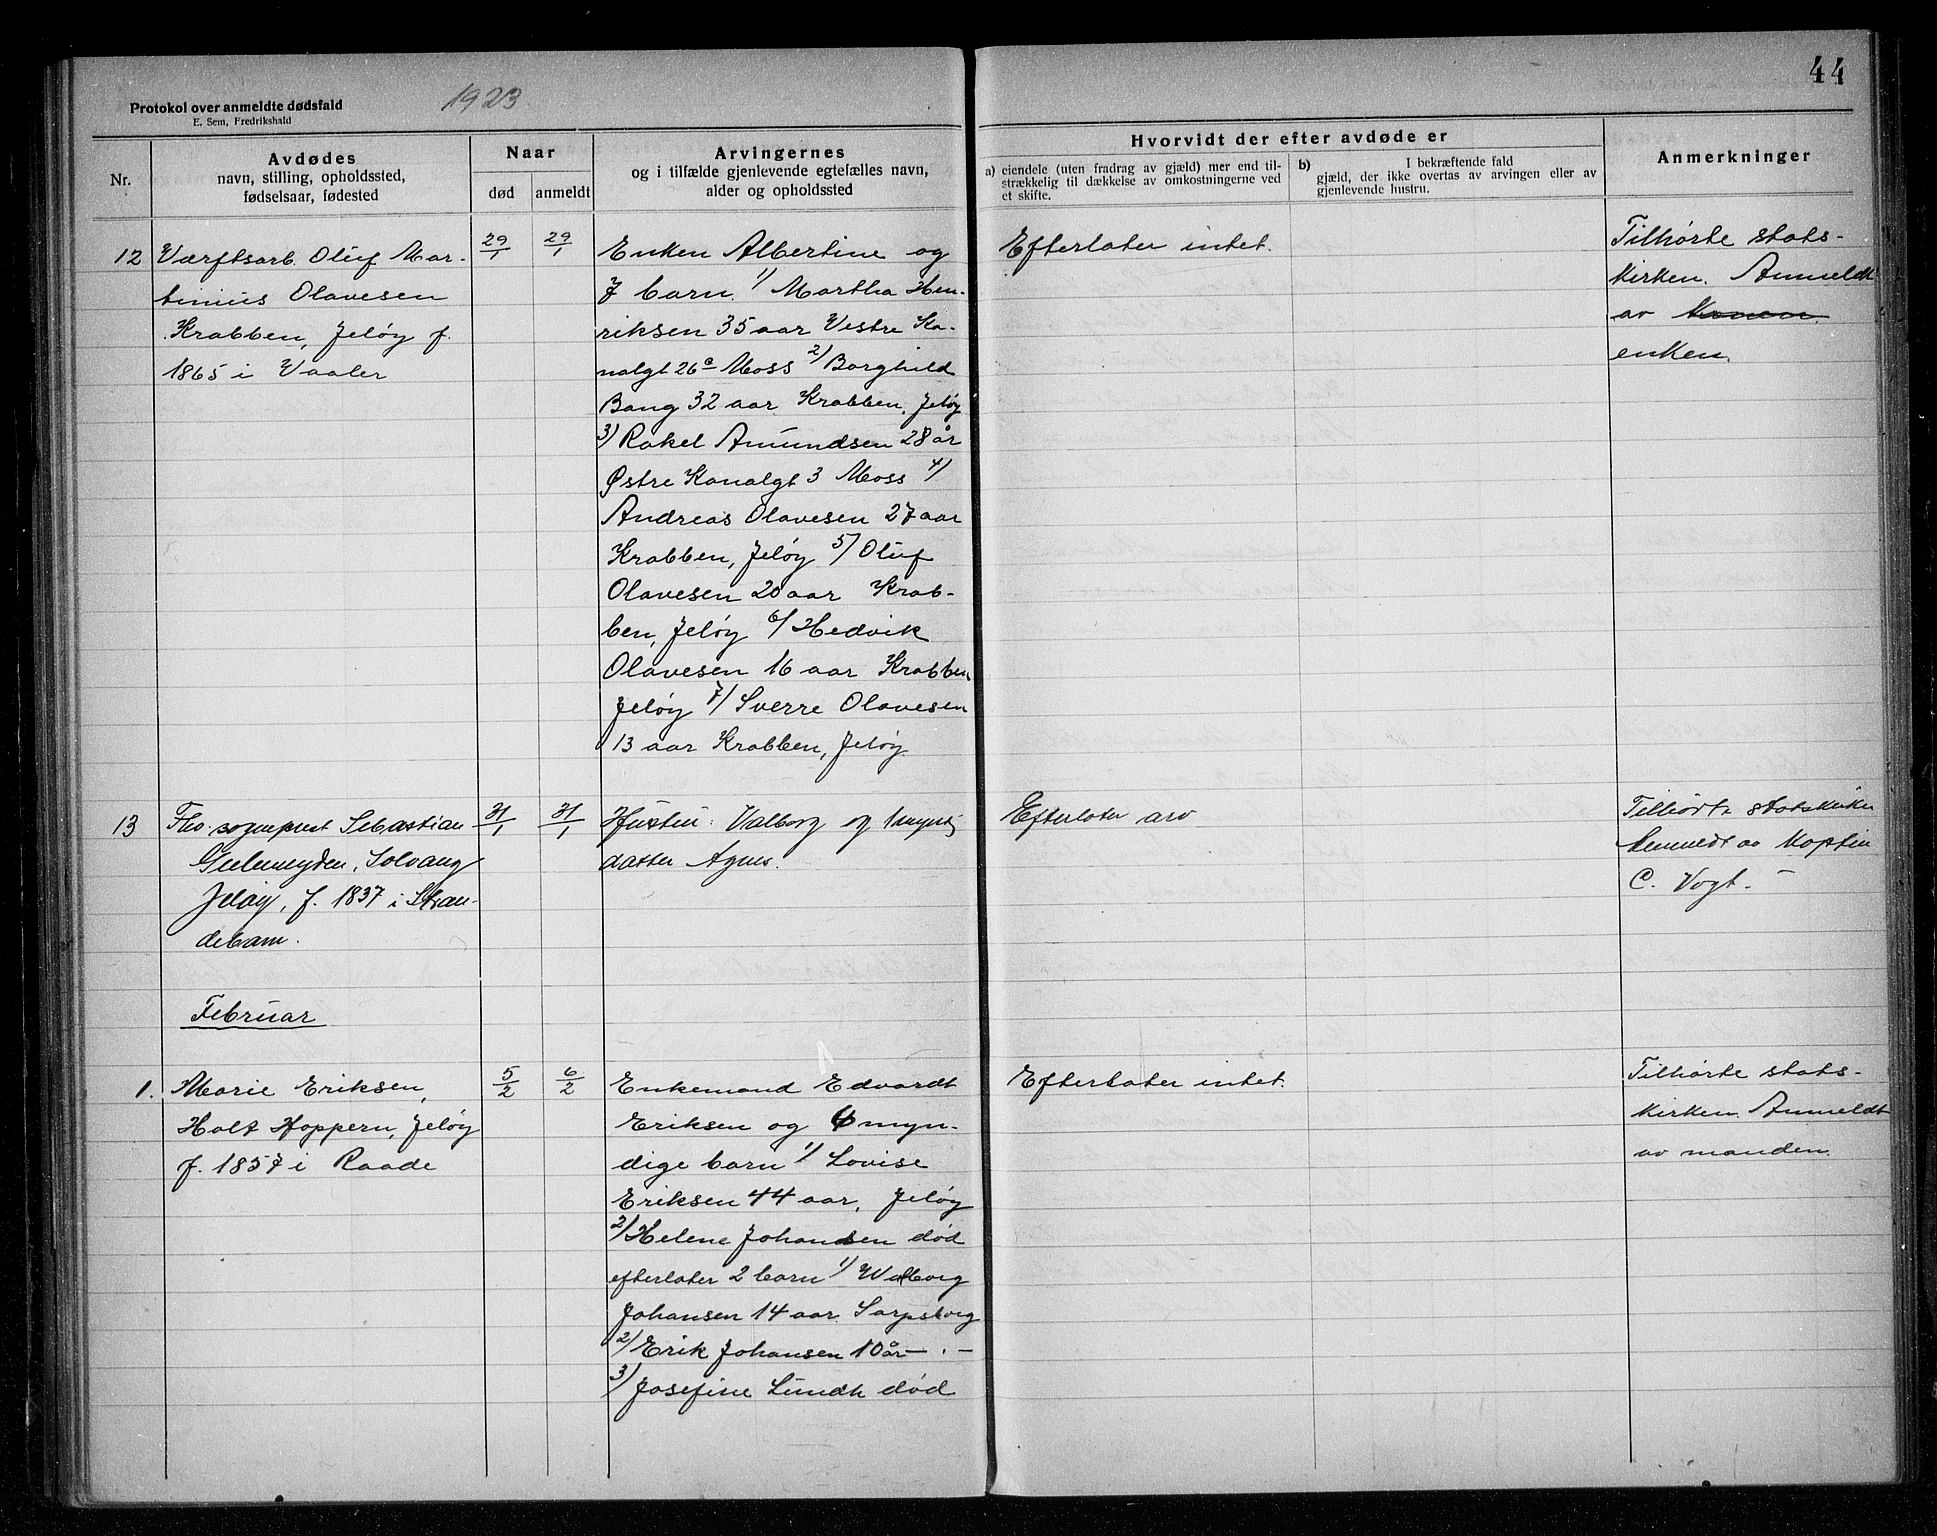 44
Protokol over anmeldte dødsfald
E. Sem, Fredrikshald
1923
Nr.
Avdødes
navn, stilling, opholdssted,
fødselsaar, fødested
Naar
død
anmeldt
Arvingernes
og i tilfælde gjenlevende egtefælles navn,
alder og opholdssted
Hvorvidt der efter avdøde er
a) eiendele (uten fradrag av gjæld) mer end til-
strækkelig til dækkelse av omkostningerne ved
et skifte.
b) I bekræftende fald
gjæld, der ikke overtas av arvingen eller av
gjenlevende hustru.
Anmerkninger
12
Værftsarb. Oluf Mar-
tinius Olavesen
Krabben, Jeløy f.
1865 i Vaaler
29/1
29/1
Enken Albertine og
7 barn. 1/ Martha Hen-
riksen 35 aar Vestre Ka-
nalgt 26a Moss 2/ Borghild
Bang 32 aar Krabben, Jeløy
3/ Rakel Amundsen 28 år
Østre Kanalgt 3 Moss 4/
Andreas Olavesen 27 aar
Krabben, Jeløy 5/ Oluf
Olavesen 20 aar Krab-
ben, Jeløy 6/ Hedvik
Olavesen 16 aar Krabben
Jeløy 7/ Sverre Olavesen
13 aar Krabben, Jeløy
Efterlater intet.
Tilhørte stats-
kirken. Anmeldt
av
enken.
13
Fhv. sogneprest Sebastian
Geelmuyden, Solvang
Jeløy, f. 1837 i Stran-
debarm.
31/1
31/1
Hustru: Valborg og myndig
datter Agnes.
Efterlater arv
Tilhørte statskirken
Anmeldt av Kaptein
C. Vogt. -
Februar
1.
Marie Eriksen,
Holt Hoppern, Jeløy
f. 1857 i Raade
5/2
6/2
Enkemand Edvardt
Eriksen og 6 myn-
dige barn 1/ Lovise
Eriksen 44 aar, Jeløy
2/ Helene Johansen død
efterlater 2 barn 1/
Johansen 14 aar Sarpsborg
2/ Erik Johansen 10 år - . -
3/ Josefine Lundh død
Efterlater intet.
Tilhørte stats-
kirken. Anmeldt
av manden.